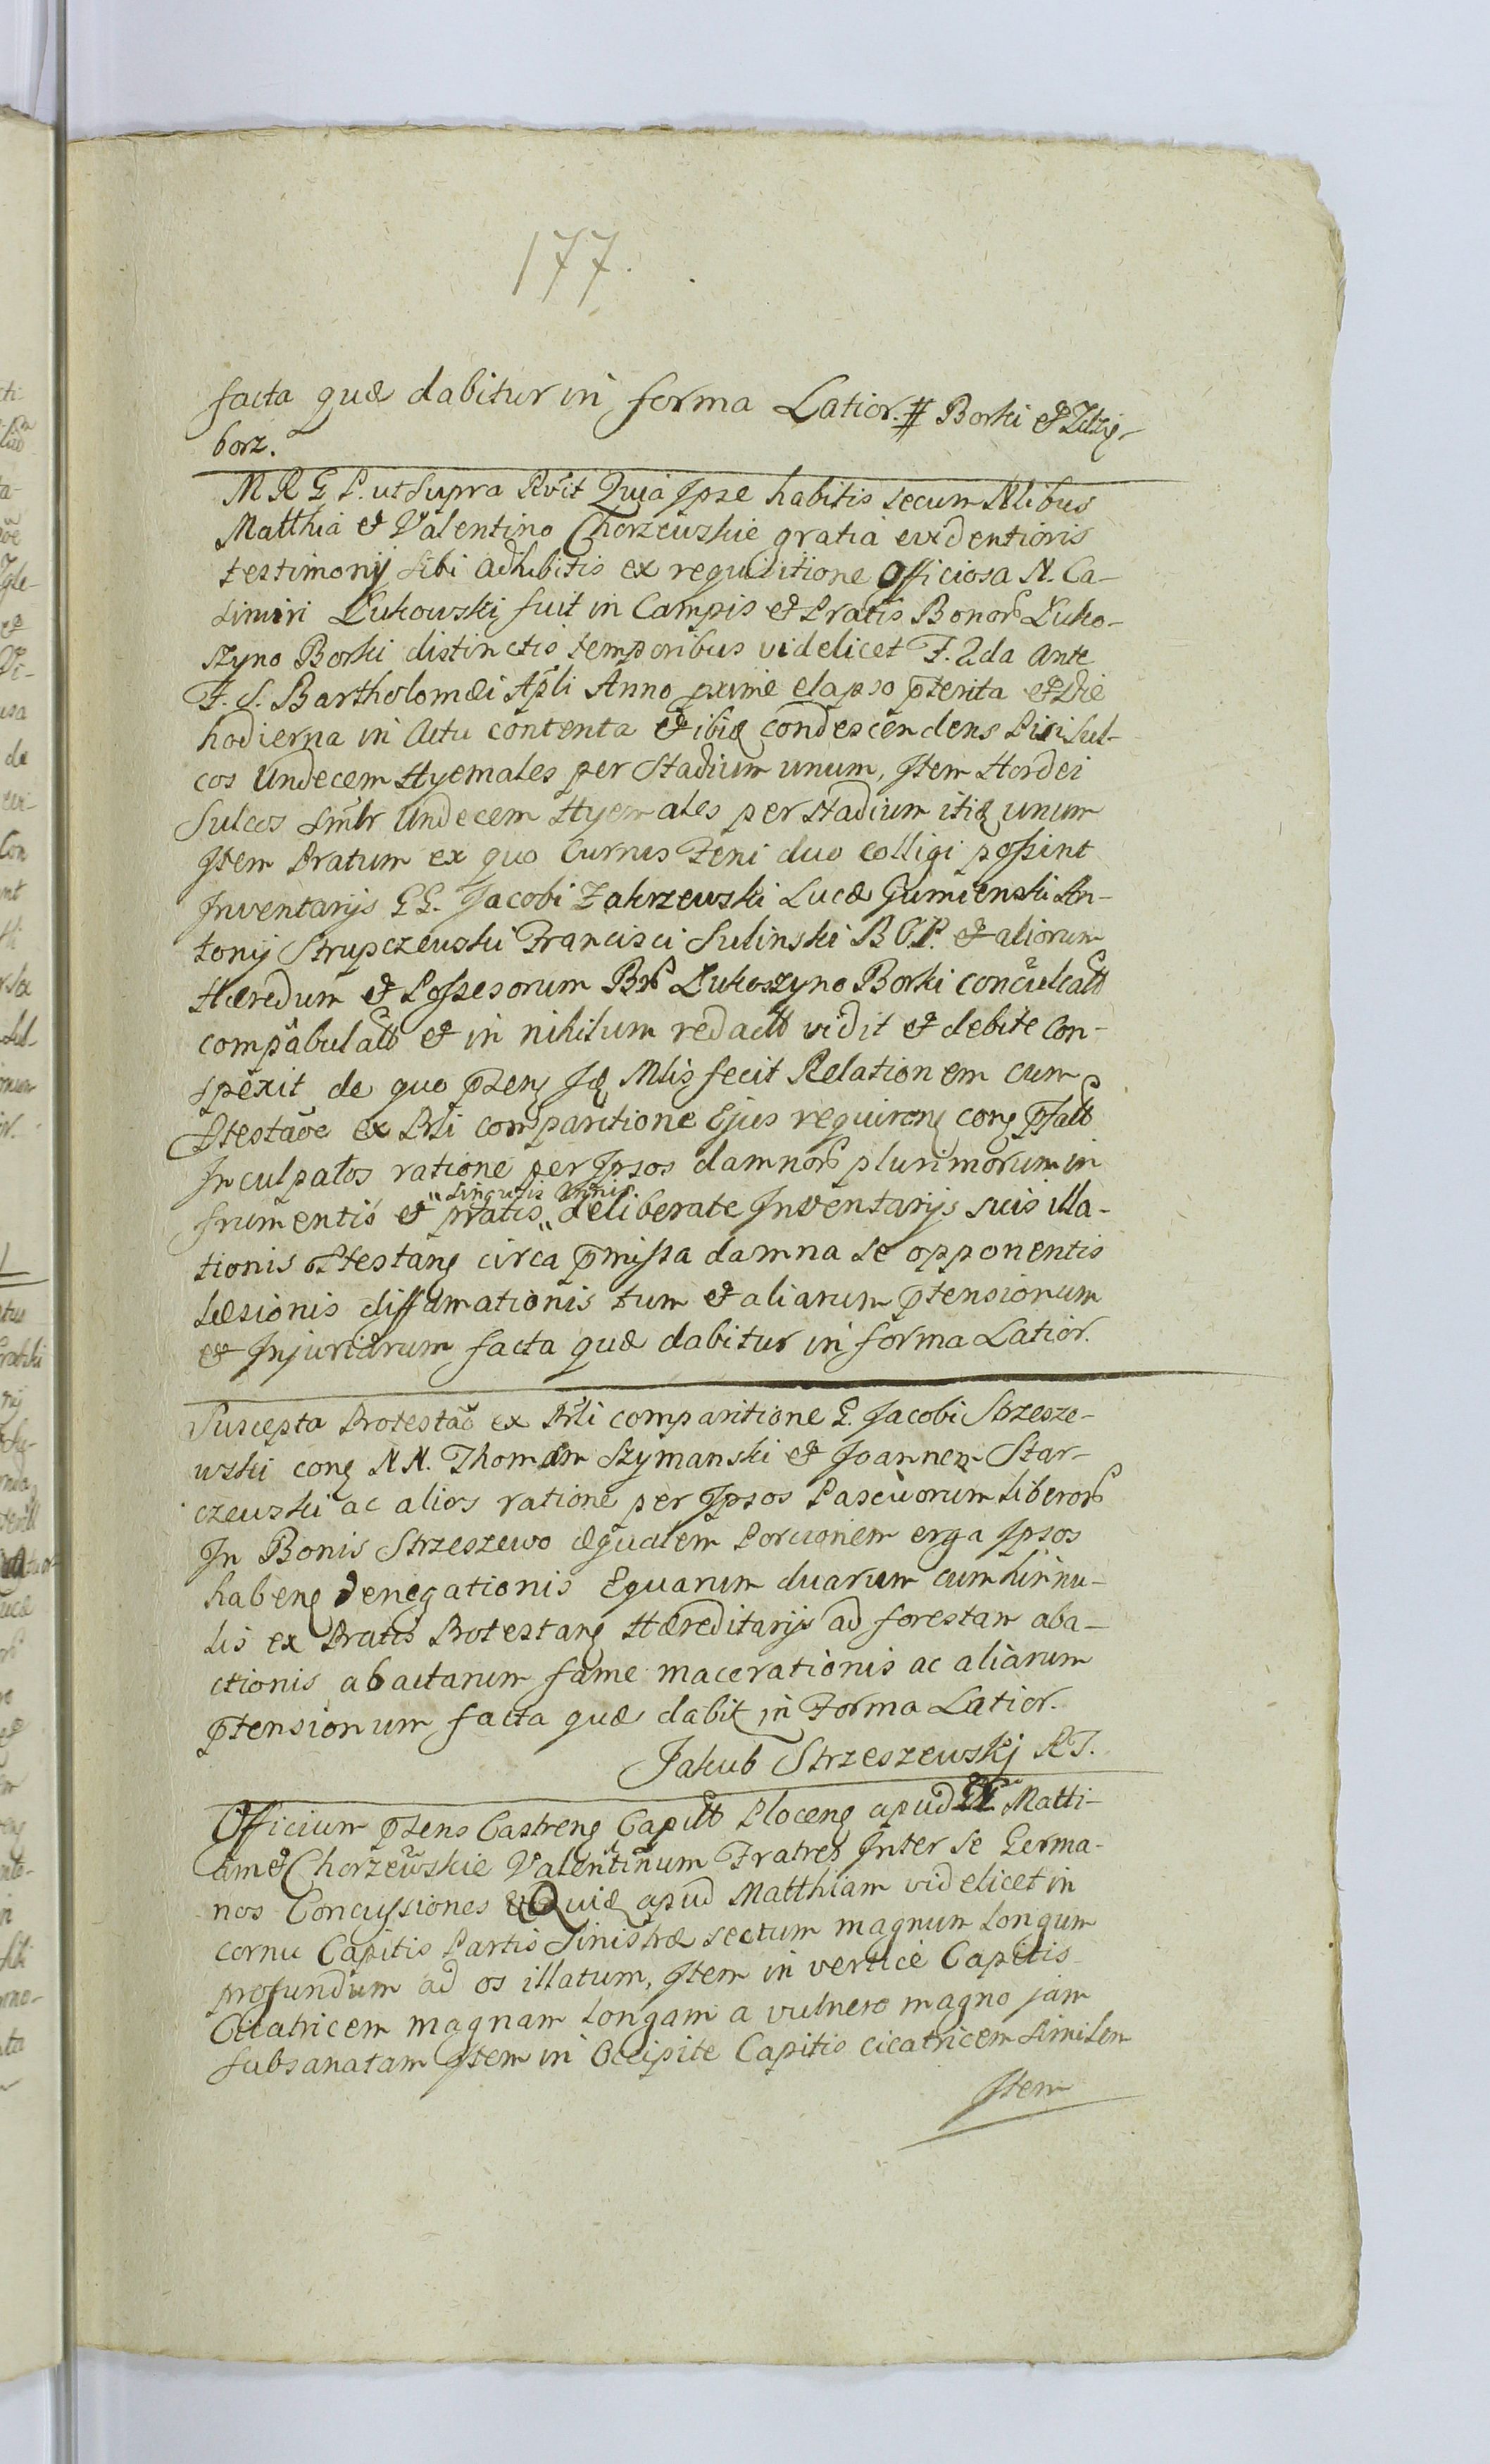 177.
facta quæ dabitur in forma Latior. # Borki et Zdzię-
borz.
M R G P. ut supra Rvit Quia Ipse habitis secum Nlibus
Matthia et Valentino Chorzewskie gratia evidentioris
testimonij sibi adhibitis ex requisitione Officiosa N. Ca-
simiri Łukowskj fuit in Campis et Pratis Bonorb Łuko-
szyno Borki distinctis temporibus videlicet F. 2da ante
F. S. Bartholomæi Apli Anno pxime elapso pterita et Die
hodierna in Actu contenta et ibiq condescendens Pisi Sul-
cos Undecem Hyemales per Stadium unum, Item Hordei
Sulcos Smlr Undecem Hyemales per stadium itiq unum
Item Pratum ex quo Currus Feni duo colligi possint
Inventarijs GG. Jacobi Zakrzewski Lucæ Gumienski An-
tonij Strupczewski Francisci Sulinski B G P. et aliorum
Hæredum et Possesorum Brb Łukoszyno Borki conculcatt
compabulatt et in nihilum redactt vidit et debite Con-
spexit de quo pzens Iq Mlis fecit Relationem cum
Ptestaõe ex Prli comparitione Ejus requirens cons pfatt
Inculpatos ratione per Ipsos damnorb plurimorum in
frumentis et pratis „singulis Annis„ deliberate Inventarijs suis illa-
tionis Ptestans circa pmissa damna se opponentis
læsionis diffamationis tum et aliarum ptensionum
et Injuriarum facta quæ dabitur in forma Latior.
Suscepta Protestaõ ex Prli comparitione G. Jacobi Strzesze-
wski cons NN. Thomam Szymanski et Joannem Star-
czewski ac alios ratione per Ipsos Pascuorum liberorb
In Bonis Strzeszewo æqualem Porcionem erga Ipsos
habens denegationis Equarum duarum cum hinnu-
lis ex Pratis Protestans Hæreditarijs ad forestam aba-
ctionis abactarum fame macerationis ac aliarum
ptensionum facta quæ dabit in Forma Latior.
Jakub Strzeszewskj RT.
Officium pzens Castrens Capitt Plocens apud Matti-
am et Chorzewskie Valentinum Fratres Inter se Germa-
nos Concussiones Quiq apud Matthiam videlicet in
cornu Capitis Partis Sinistræ sectum magnum longum
profundum ad os illatum, Item in vertice Capitis
Cicatricem magnam longam a vulnere magno jam
subsanatam Item in Occipite Capitis cicatricem similem
Item